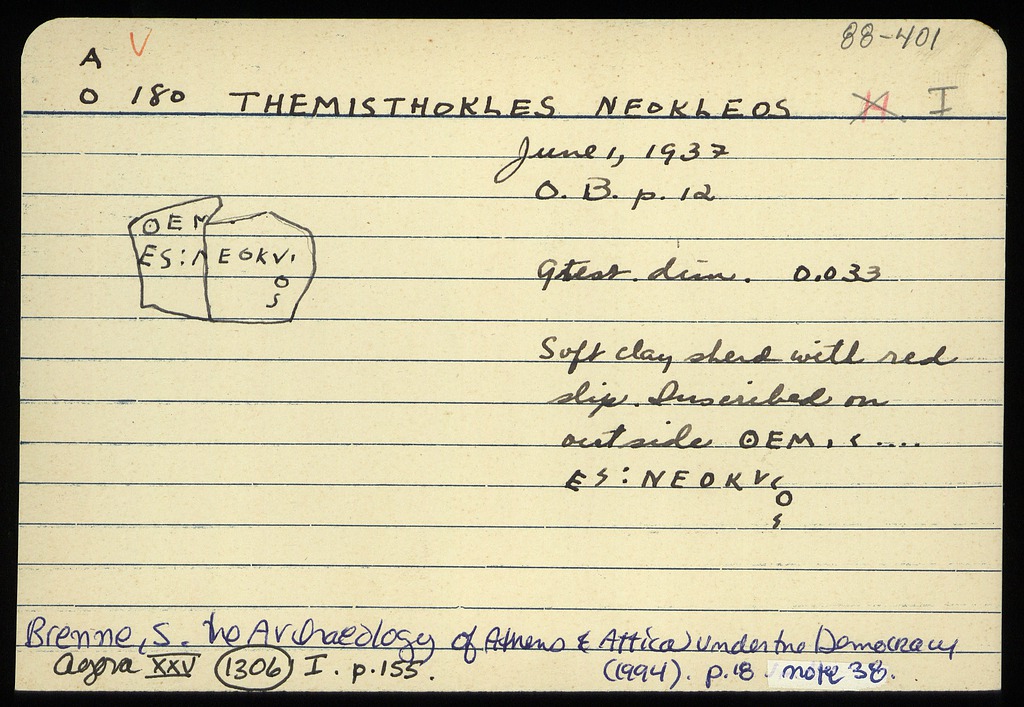 88-401
A V
O 180 THEMISTHOKLES NEOKLEOS H I
June 1, 1937
O. B. p. 12
ΟΕΜ
ES:N EOKV
O
S
Gtest. dim. 0.033
Soft clay sherd with red
slip. Inscribed on
outside ΟΕΜ.ς....
ES:NEOKV
O
S
Brenne, S. The Archaeology of Athens & Attica under the Democracy
Agora XXV (1306) I. p.155. (1994). p.18 note 38.